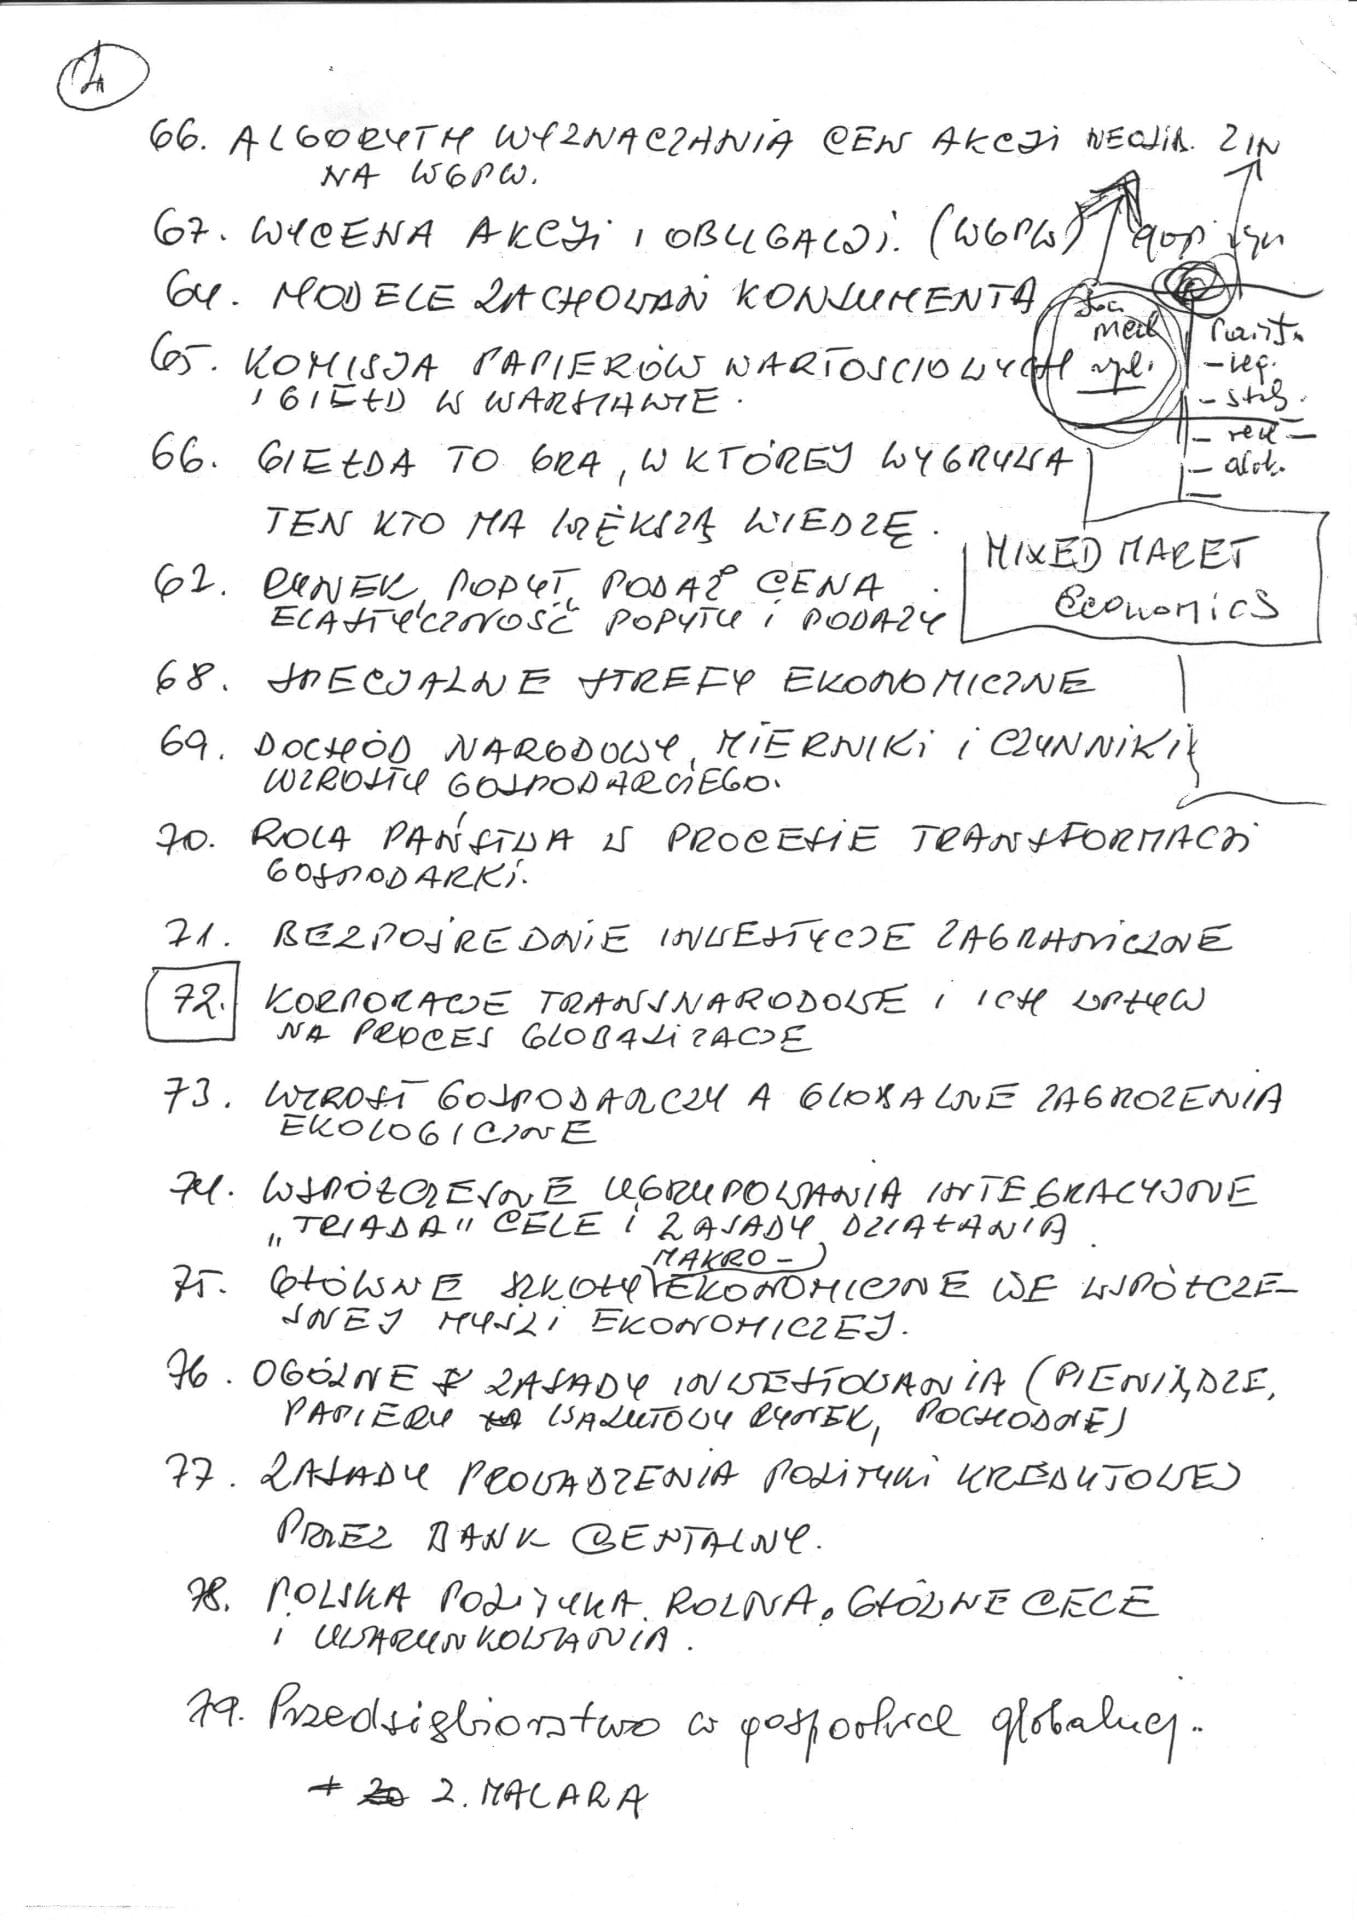 66. ALGORYTM WYZNACZANIA CEN AKCJI
NA WGPW.
67. WYCENA AKCJI I OBLIGACJI. (WGPW)
64. MODELE ZACHOWAŃ KONSUMENTA
65. KOMISJA PAPIERÓW WARTOSCIOWYCH
I GIEŁD W WARSZAWIE.
66. GIEŁDA TO GRA, W KTÓREJ WYGRYWA
TEN KTO MA WIĘKSZĄ WIEDZĘ.
62. RYNEK, POPYT, PODAŻ CENA
ELASTYCZNOŚĆ POPYTU I PODAŻY
MIXED MARET
Economics
68. SPECJALNE STREFY EKONOMICZNE
69. DOCHÓD NARODOWY, MIERNIKI I CZYNNIKI
WZROSTU GOSPODARCZEGO.
70. ROLA PAŃSTWA W PROCESIE TRANSFORMACJI
GOSPODARKI.
71. BEZPOŚREDNIE INWESTYCJE ZAGRANICZNE
72. KORPORACJE TRANSNARODOWE I ICH WPŁYW
NA PROCES GLOBALIZACJE
73. WZROST GOSPODARCZY A GLOBALNE ZAGROZENIA
EKOLOGICZNE
74. WSPÓŁCZESNE UGRUPOWANIA INTEGRACYJNE
„TRIADA" CELE I ZASADY DZIAŁANIA
MAKRO-
75. GŁÓWNE SZKOŁY EKONOMICZNE WE WSPÓŁCZE-
SNEJ MYŚLI EKONOMICZEJ.
76. OGÓLNE ZASADY INWESTOWANIA (PIENIĄDZE,
PAPIERY WALUTOWY RYNEK, POCHODNE)
77. ZASADY PROWADZENIA POLITYKI KREDYTOWEJ
PRZEZ BANK CENTALNY.
78. POLSKA POLITYKA ROLNA. GŁÓWNE CELE
I UWARUNKOWANIA.
79. Przedsiębiorstwo w gospodarce globalnej.
+ Z. MALARA